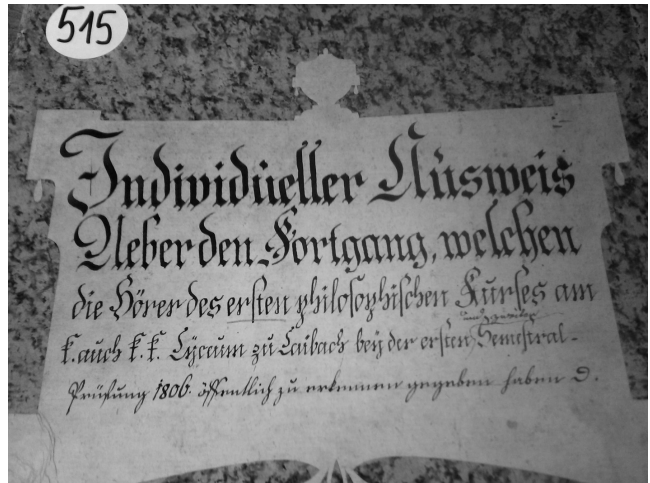 515
Individueller Ausweis
Ueber den Fortgang, welchen
die Hörer des ersten philosophischen Kurses am
und zweiten
k. auch k. k. Lyceum zu Laibach bey der ersten Semestral-
Prüfung 1806. öffentlich zu erkennen gegeben haben